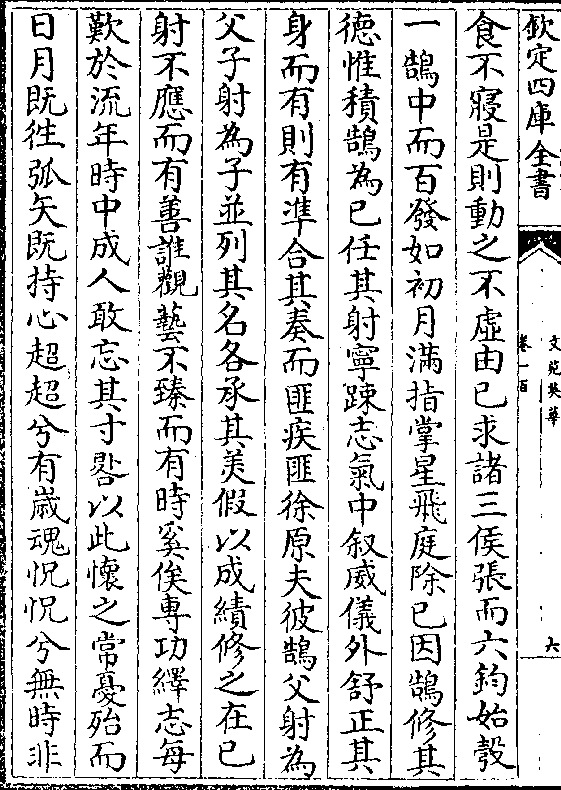 欽定四庫全書
文苑英華
卷一百
六
食不寢是則動之不虛由已求諸三侯張而六鈞始彀
一鵠中而百發如初月滿指掌星飛庭除已因鵠修其
德惟積鵠為已任其射寧踈志氣中叙威儀外舒正其
身而有則有準合其奏而匪疾匪徐原夫彼鵠父射為
父子射為子並列其名各承其美假以成績修之在已
射不應而有善誰觀藝不臻而有時奚俟專功繹志每
歎於流年時中成人敢忘其寸晷以此懷之常憂殆而
日月既徃弧矢既持心超超兮有嵗魂怳怳兮無時非